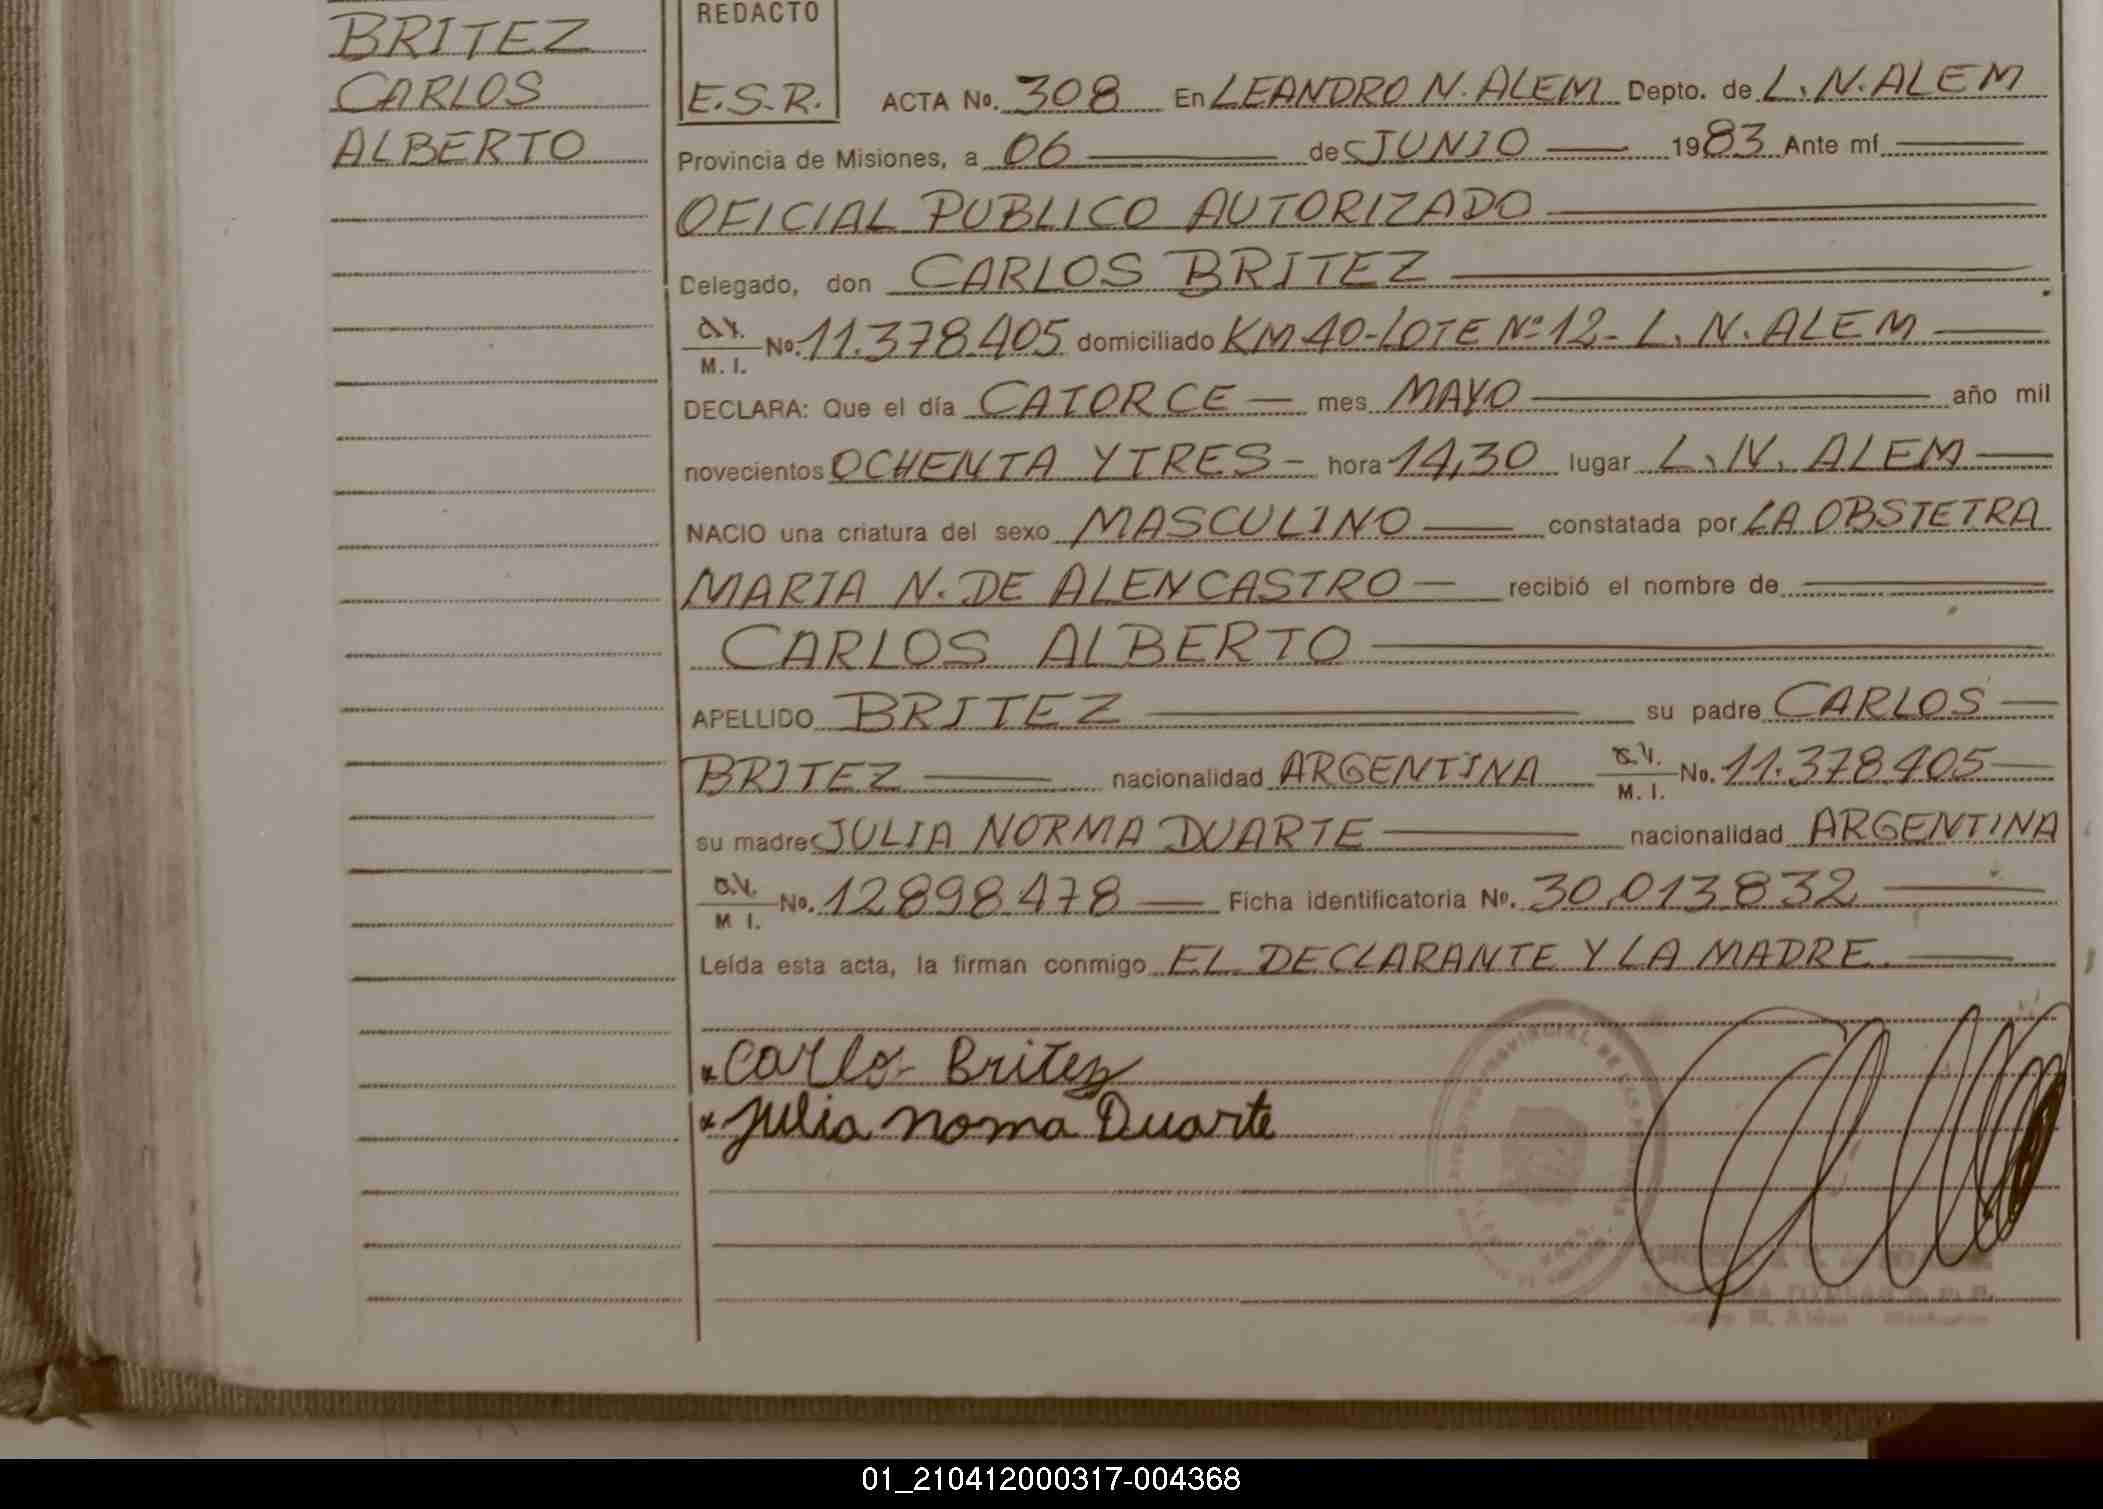 BRITEZ
CARLOS
ALBERTO
REDACTO
E.S.R.
ACTA No. 308 En LEANDRO N. ALEM Depto. de L. N. ALEM
Provincia de Misiones, a 06 de JUNIO 1983 Ante mí
OFICIAL PUBLICO AUTORIZADO
Delegado, don CARLOS BRITEZ
M. I. No. 11.378.405 domiciliado KM 40-LOTE Nº 12- L. N. ALEM
DECLARA: Que el día CATORCE mes MAYO año mil
novecientos OCHENTA Y TRES - hora 14,30 lugar L. N. ALEM
NACIO una criatura del sexo MASCULINO constatada por LA OBSTETRA
MARIA N. DE ALENCASTRO recibió el nombre de
CARLOS ALBERTO
APELLIDO BRITEZ su padre CARLOS
BRITEZ nacionalidad ARGENTINA M. I. No. 11.378.405
su madre JULIA NORMA DUARTE nacionalidad ARGENTINA
M I. No. 12898478 Ficha identificatoria Nº. 30.013.832
Leída esta acta, la firman conmigo EL DECLARANTE Y LA MADRE.
Carlos Britez
Julia Noma Duarte
01_210412000317-004368